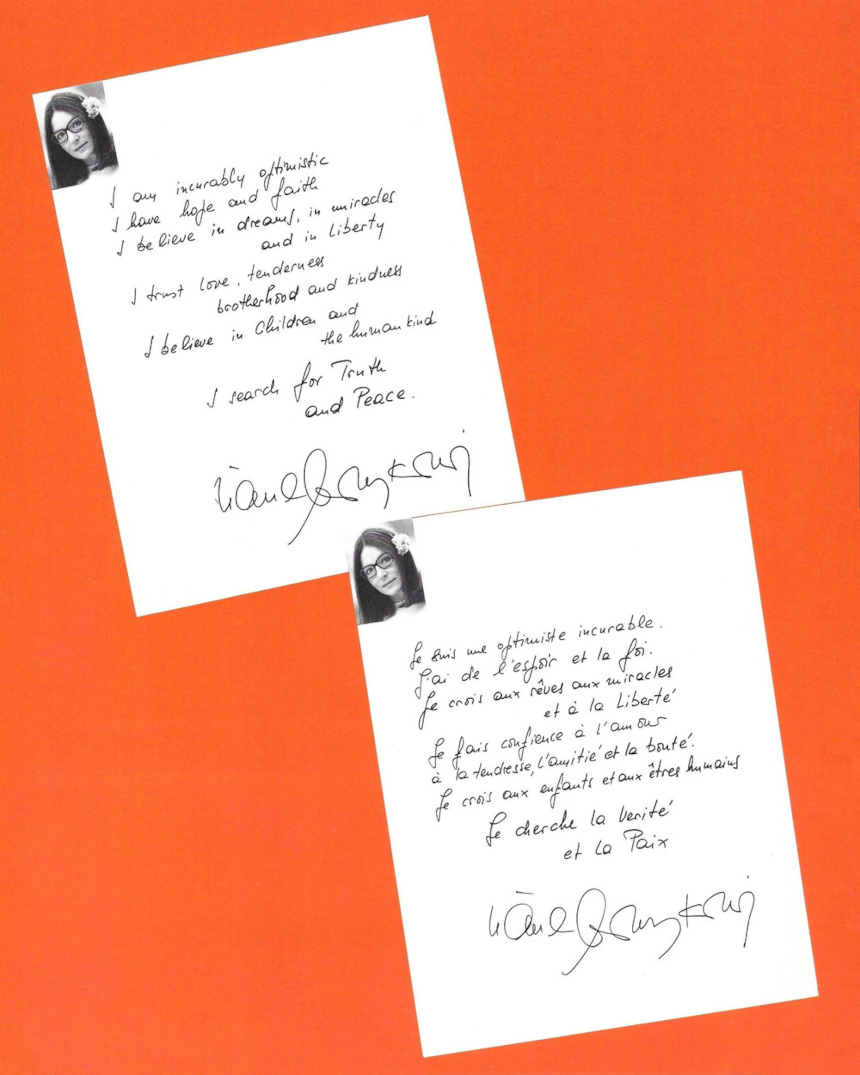 I am incurably optimistic
I have hope and faith
I believe in dreams, in miracles
and in Liberty
I trust love, tenderness
brotherhood and kindness
I believe in Children and
the humankind
I search for Truth
and Peace.
Je suis une optimiste incurable.
J'ai de l'espoir et la foi.
Je crois aux rêves aux miracles
et à la Liberté
Je fais confience à l'amour
à la tendresse, l'amitié et la bonté.
Je crois aux enfants et aux êtres humains
Je cherche la Verité
et la Paix